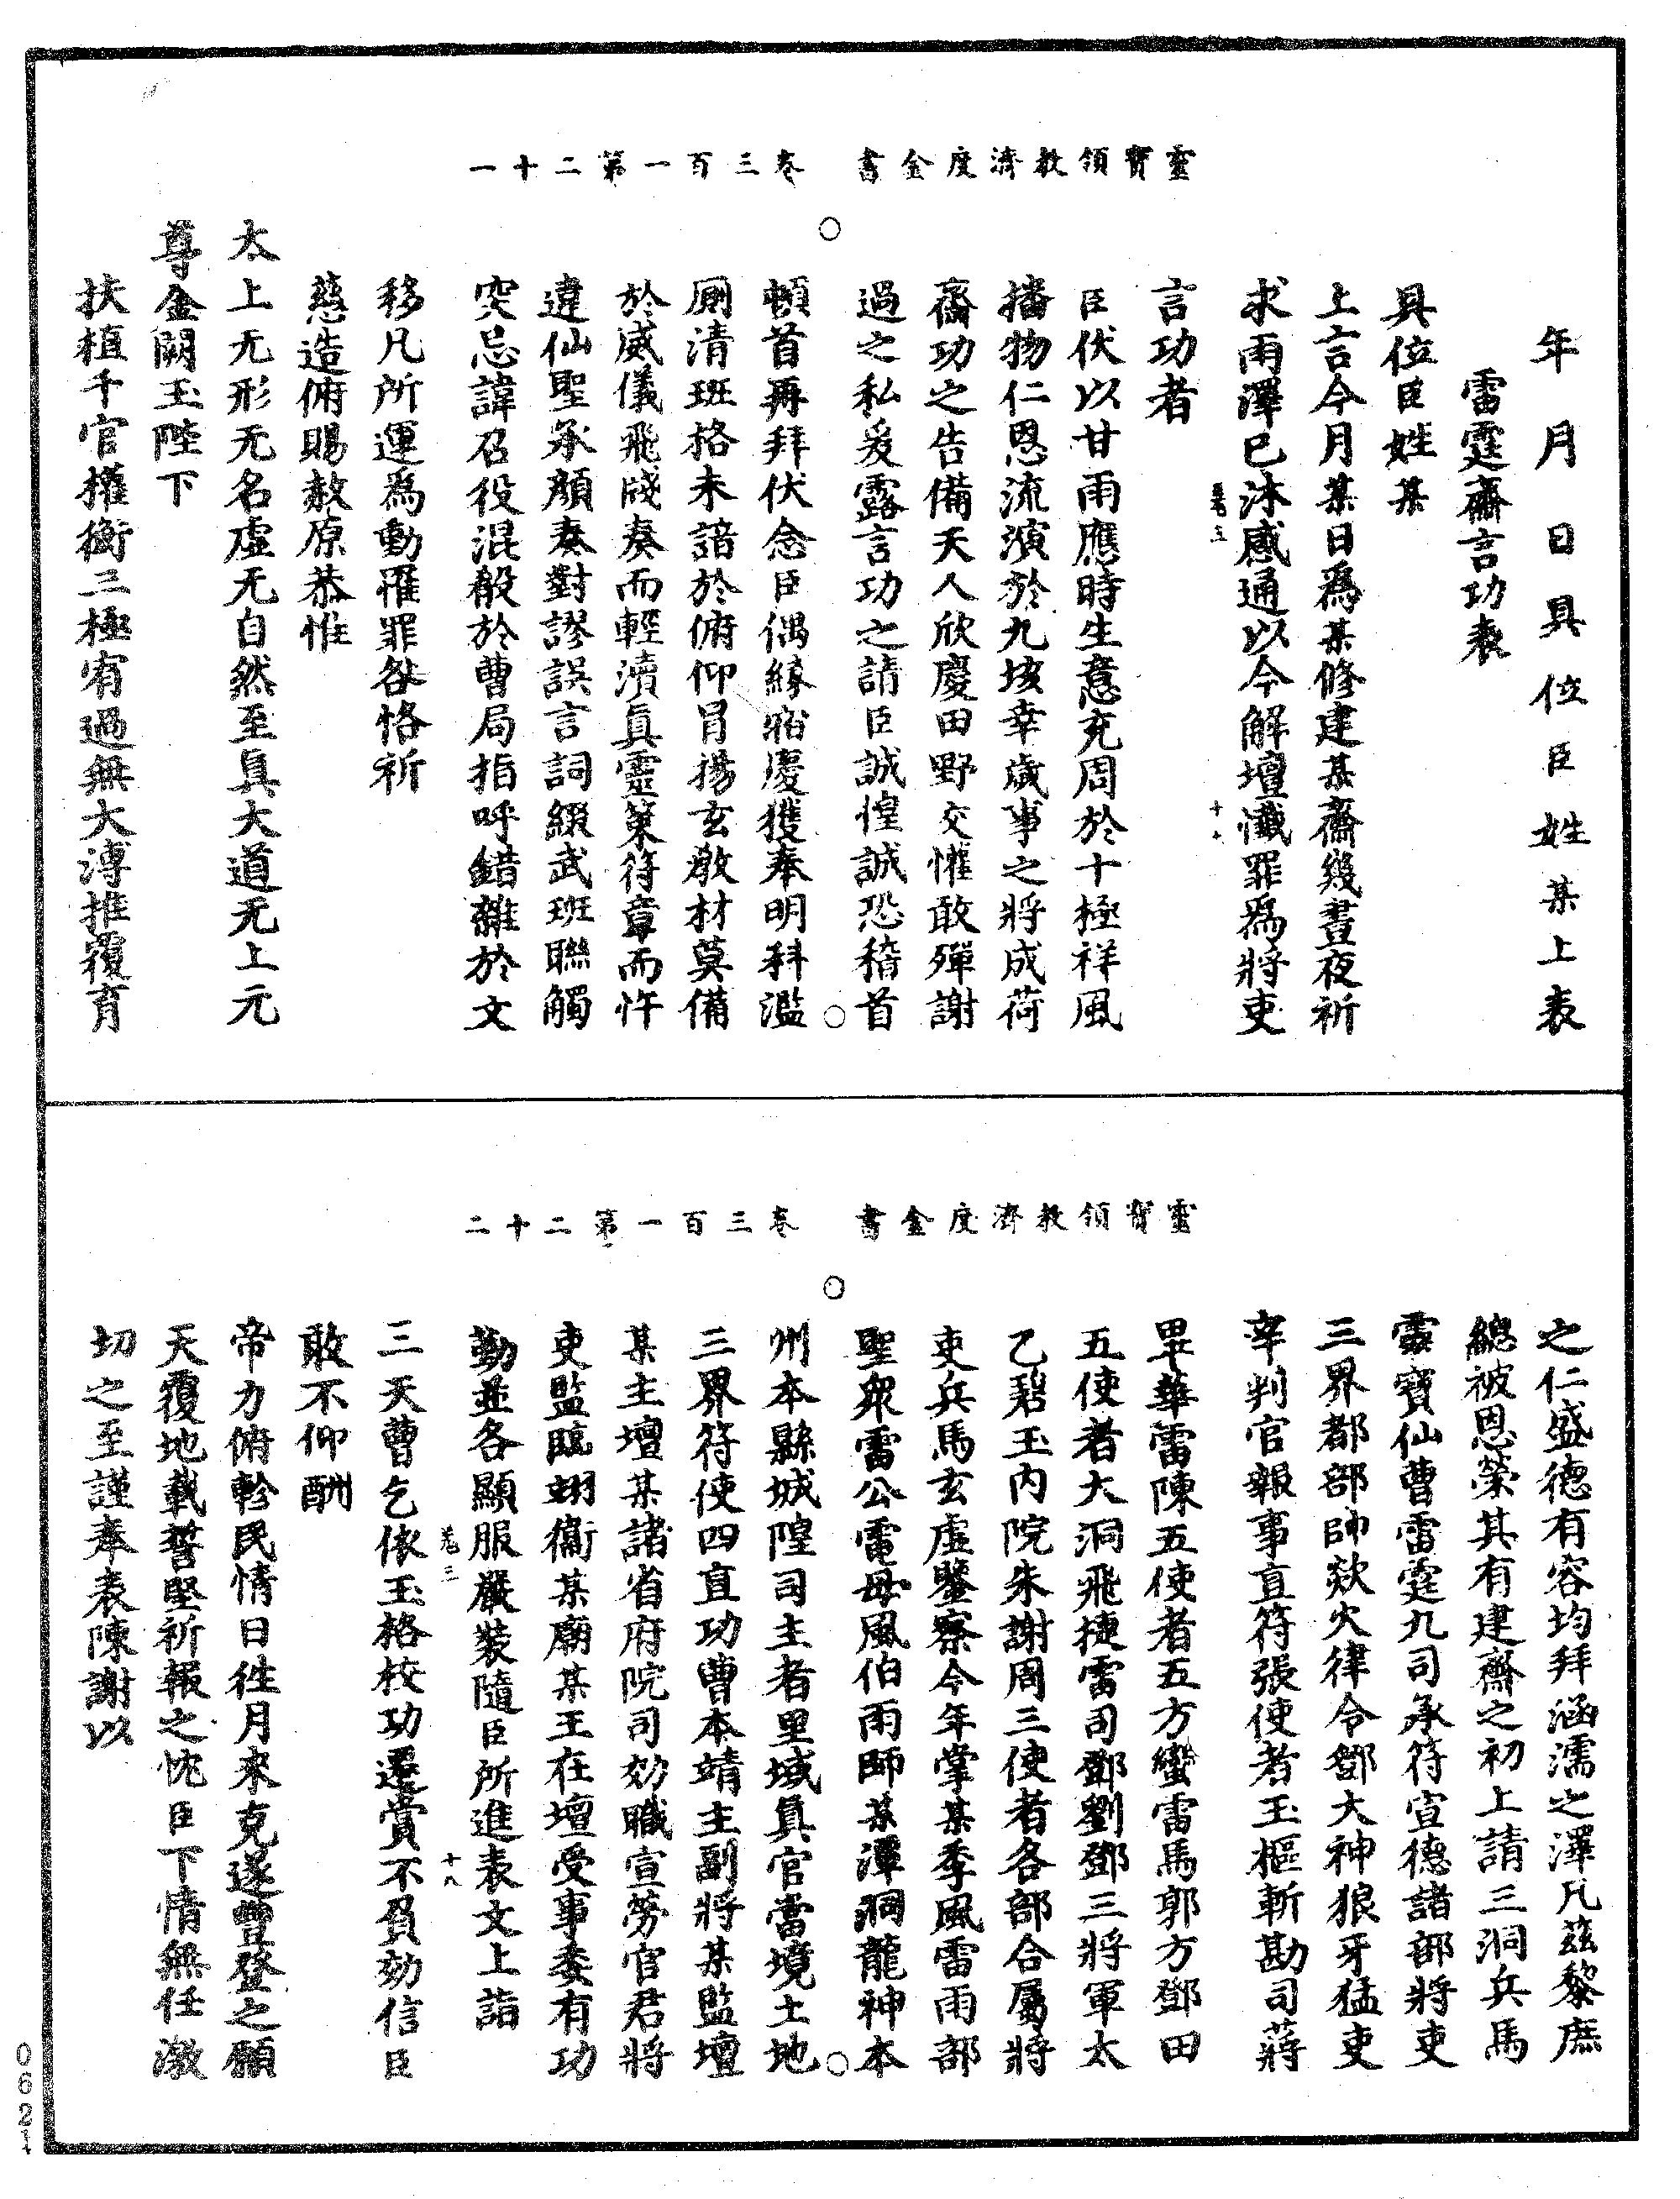 靈寶領教濟度金書　卷三百一第二十一
年月日具位臣姓某上表
雷霆齋言功表
具位臣姓某
上言今月某日爲某修建某齋幾晝夜祈
求雨澤已沐感通以今解壇懺罪爲將吏
言功者
臣伏以甘雨應時生意充周於十極祥風
播物仁恩流演於九垓幸歲事之將成荷
齋功之告備天人欣慶田野交懽敢殫謝
過之私爰露言功之請臣誠惶誠恐稽首
頓首再拜伏念臣偶緣宿慶獲奉明科濫
厠清班格未諳於俯仰冐揚玄教材莫備
於威儀飛牋奏而輕瀆眞靈篆符章而忤
違仙聖承顏奏對謬誤言詞綴武班聯觸
突忌諱召役混殽於曹局指呼錯雜於文
移凡所運爲動罹罪咎恪祈
慈造俯賜赦原恭惟
太上无形无名虛无自然至眞大道无上元
尊金闕玉陛下
扶植千官權衡三極宥過無大溥推覆育
靈寶領教濟度金書　卷三百一第二十二
之仁盛德有容均拜涵濡之澤凡茲黎庶
總被恩榮其有建齋之初上請三洞兵馬
靈寶仙曹雷霆九司承符宣德諸部將吏
三界都部帥歘火律令鄧大神狼牙猛吏
辛判官報事直符張使者玉樞斬勘司蔣
畢華雷陳五使者五方蠻雷馬郭方鄧田
五使者大洞飛捷雷司鄧劉鄧三將軍太
乙碧玉內院朱謝周三使者各部合屬將
吏兵馬玄虛鑒察今年掌某季風雷雨部
聖衆雷公電母風伯雨師某潭洞龍神本
州本縣城隍司主者里域眞官當境土地
三界符使四直功曹本靖主副將某監壇
某主壇某諸省府院司効職宣勞官君將
吏監臨翊衞某廟某王在壇受事委有功
勤並各顯服嚴裝隨臣所進表文上詣
三天曹乞依玉格校功遷賞不負効信臣
敢不仰酬
帝力俯軫民情日往月來克遂豐登之願
天覆地載誓堅祈報之忱臣下情無任激
切之至謹奉表陳謝以
卷三
十八
0621